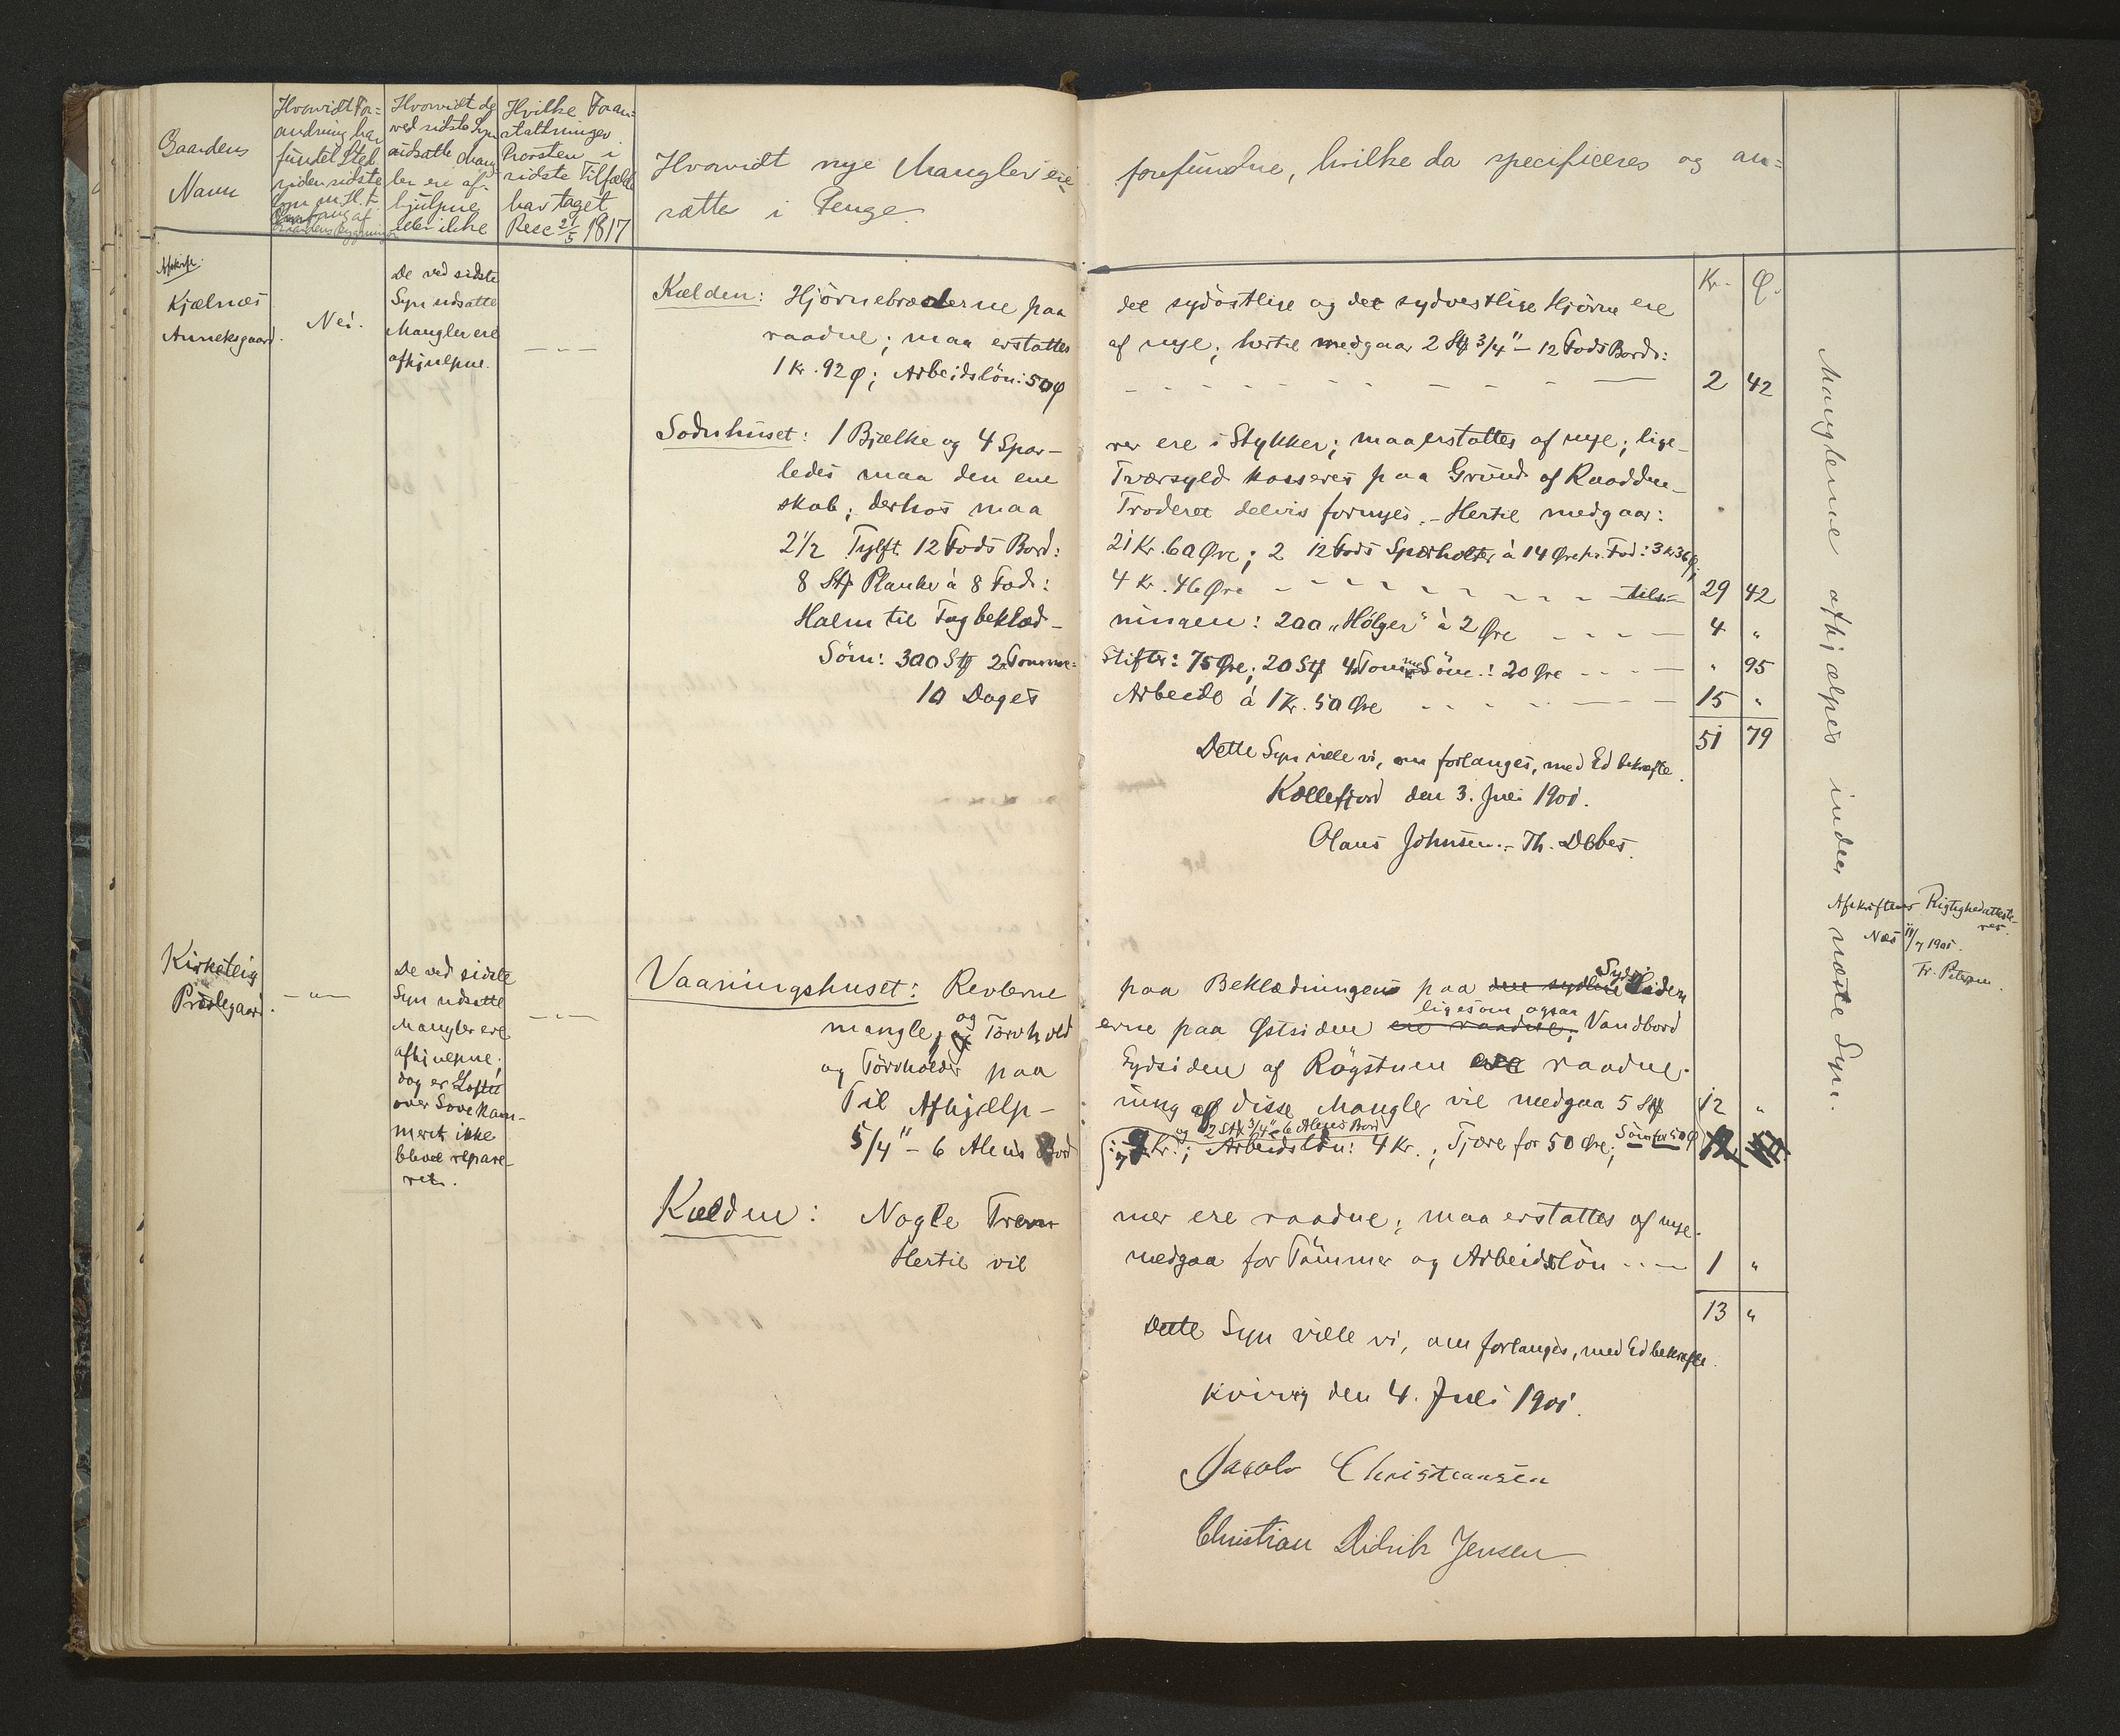 Gaardens
Navn
Hvorvidt For-
andring har
fundet Sted
siden sidste
Syn m. H. t.
Omfang af
Gaardens Bygninger
Hvorvidt de
ved sidste Syn
udsatte Mang
ler ere af-
hjulpne
eller ikke
Hvilke Foran-
staltninger
Provsten i
sidste Tilfælde
har taget
Resc 21/5 1817
Hvorvidt nye Mangler ere forefundne, hvilke da specificeres og an-
sættes i Penge.
Kr. Ø.
Afskrift.
Kjælnæs
Anneksgaard.
Nei.
De ved sidste
Syn udsatte
Mangler ere
afhjulpne.
— „ —
Kælden: Hjörnebræderne paa det sydöstlige og det sydvestlige Hjörne ere
raadne; maa erstattes af nye; hertil medgaar 2 Stk 3/4" – 12 Fods Bord:
1 Kr. 92 Ø; Arbeidslön: 50 Ø - - - - - - - - 2 42
Sodnhuset: 1 Bjælke og 4 Spar- rer ere i Stykker; maa erstattes af nye; lige-
ledes maa den ene Tværsyld kasseres paa Grund af Raadden-
skab; derhos maa Troderet delvis fornyes. – Hertil medgaar:
2 1/2 Tylft 12 Fods Bord: 21 Kr. 60 Øre; 2 12 Fods Sparholter à 14 Øre pr. Fod: 3 Kr 36 Ø;
8 Stk Planke à 8 Fod: 4 Kr. 46 Øre - - - - - - - - tils. 29 42
Halm til Tagbeklæd- ningen: 200 „Hölger" à 2 Øre - - - - 4 „
Söm: 300 Stk 2 Tomme- Stifter: 75 Øre; 20 Stk 4 Tomme Söm: 20 Øre - - - „ 95
10 Dages Arbeide à 1 Kr. 50 Øre - - - - - - 15 „
51 79
Dette Syn ville vi, om forlanges, med Ed bekræfte.
Kollefjord den 3. Juli 1901.
Olaus Johnsen. – Th. Debes.
Manglerne afhjælpes inden næste Syn.
Afskriftens Rigtighed atteste-
res.
Næs 11/7 1901.
Fr. Petersen.
Kirketeig
Præstegaard.
— „ —
De ved sidste
Syn udsatte
Mangler ere
afhjulpne;
dog er Loftet
over Sovekam-
meret ikke
blevet repare-
ret.
— „ —
Vaaningshuset: Revlerne paa Beklædningens paa den sydlige Syd Siden
mangle, og Törvhold erne paa Østsiden ere raadne, ligesom ogsaa Vandbord
og Törvholder paa Sydsiden af Rögstuen ere raadne.
Til Afhjælp- ning af disse Mangler vil medgaa 5 Stk 12 „
5/4" – 6 Alens Bord og 2 Stk 3/4" - 6 Alens Bord
: 7 Kr.; Arbeidslön: 4 Kr.; Tjære for 50 Øre; Söm for 50 Ø
Kælden: Nogle Trem- mer ere raadne; maa erstattes af nye.
Hertil vil medgaa for Tömmer og Arbeidslön - - — 1 „
13 „
Dette Syn ville vi, om forlanges, med Ed bekræfte.
Kvivig den 4. Juli 1901.
Jacob Christiansen
Christian Didrik Jensen